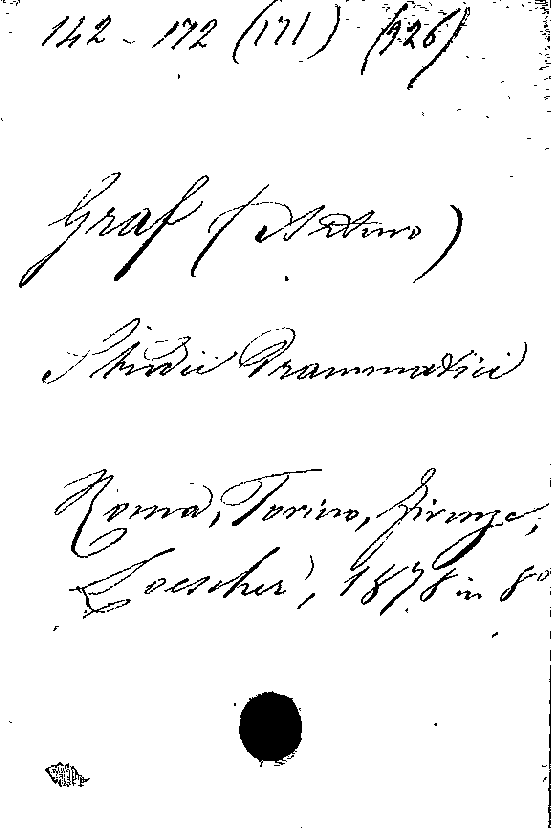 142 - 172 (171) (926)
Graf (Arturo)
Studii Drammatici
Roma, Torino, Firenze,
Loescher, 1878 in 8°